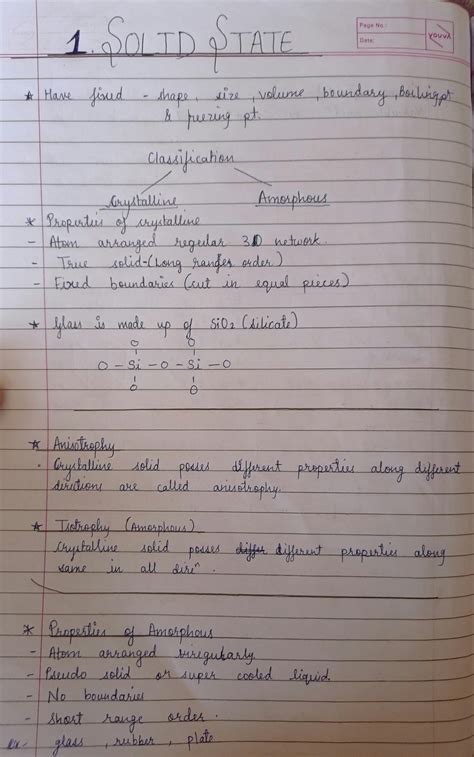 Page No.:
Date:
youva
1. SOLID STATE
* Have fixed - shape, size, volume, boundary, Boiling pt
& freezing pt.
Classification
Crystalline Amorphous
* Properties of crystalline
- Atom arranged regular 3D network.
- True solid-(Long ranger order)
- Fixed boundaries (cut in equal pieces)
* Glass is made up of SiO2 (silicate)
O O
O - Si - O - Si - O
O O
* Anisotrophy
. Crystalline solid posses different properties along different
directions are called anisotrophy.
* Isotrophy (Amorphous)
Crystalline solid posses differ different properties along
same in all direⁿ.
* Properties of Amorphous
- Atom arranged irregularly
- Pseudo solid or super cooled liquid
- No boundaries
- short range order.
ex- glass, rubber, plate